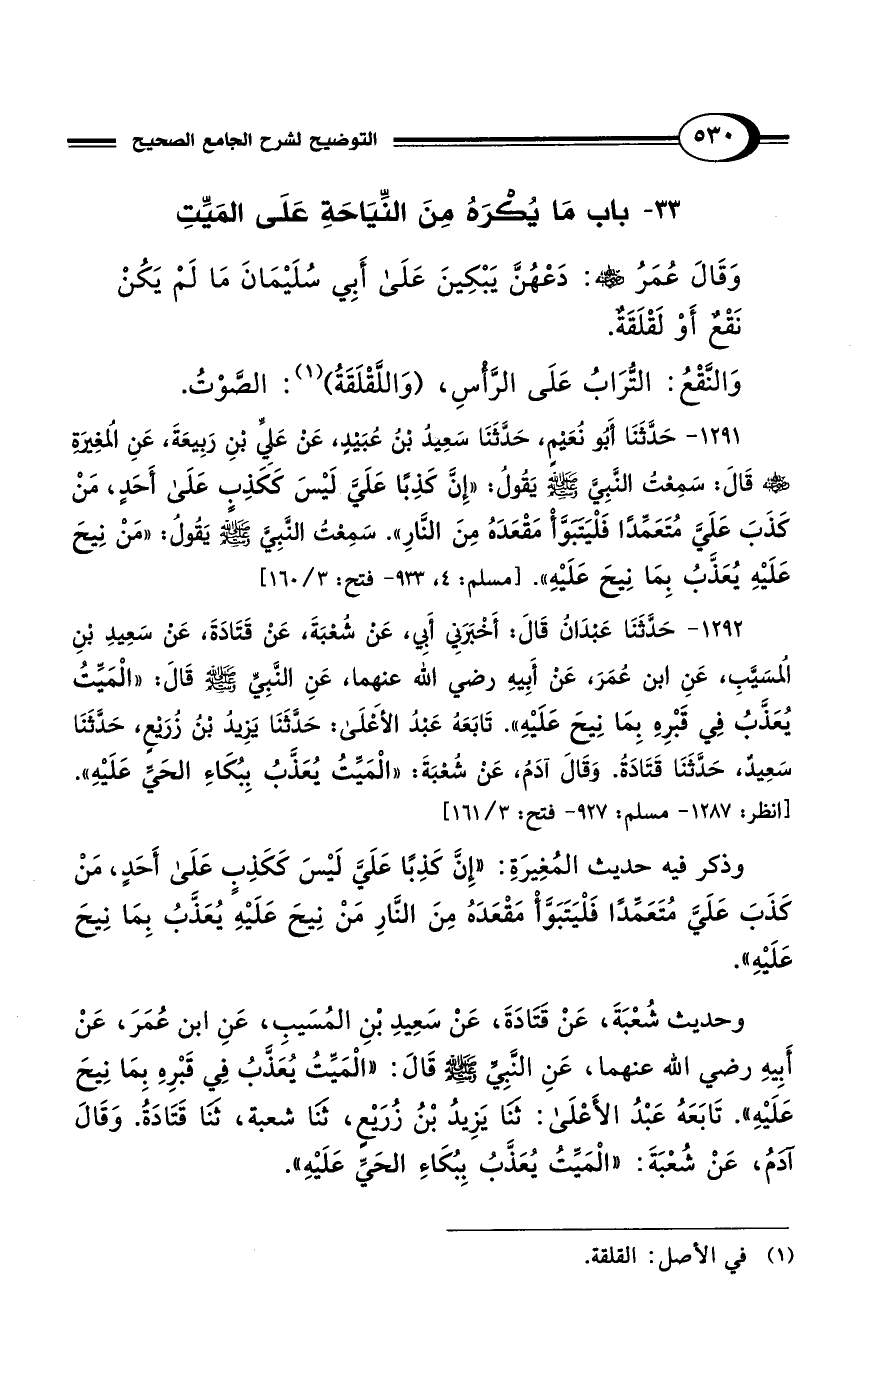 ٥٣٠ التوضيح لشرح الجامع الصحيح
٣٣- باب مَا يُكْرَهُ مِنَ النِّيَاحَةِ عَلَى المَيِّتِ
وَقَالَ عُمَرُ ﵁: دَعْهُنَّ يَبْكِينَ عَلَىٰ أَبِي سُلَيْمَانَ مَا لَمْ يَكُنْ
نَقْعٌ أَوْ لَقْلَقَةٌ.
وَالنَّقْعُ: التُّرَابُ عَلَى الرَّأْسِ، (وَاللَّقْلَقَةُ)(١): الصَّوْتُ.
١٢٩١- حَدَّثَنَا أَبُو نُعَيْمٍ، حَدَّثَنَا سَعِيدُ بْنُ عُبَيْدٍ، عَنْ عَلِيِّ بْنِ رَبِيعَةَ، عَنِ الْمُغِيرَةِ
﵁ قَالَ: سَمِعْتُ النَّبِيَّ ﷺ يَقُولُ: «إِنَّ كَذِبًا عَلَيَّ لَيْسَ كَكَذِبٍ عَلَىٰ أَحَدٍ، مَنْ
كَذَبَ عَلَيَّ مُتَعَمِّدًا فَلْيَتَبَوَّأْ مَقْعَدَهُ مِنَ النَّارِ». سَمِعْتُ النَّبِيَّ ﷺ يَقُولُ: «مَنْ نِيحَ
عَلَيْهِ يُعَذَّبُ بِمَا نِيحَ عَلَيْهِ». [مسلم: ٤، ٩٣٣- فتح: ٣/ ١٦٠]
١٢٩٢- حَدَّثَنَا عَبْدَانُ قَالَ: أَخْبَرَنِي أَبِي، عَنْ شُعْبَةَ، عَنْ قَتَادَةَ، عَنْ سَعِيدِ بْنِ
الْمُسَيَّبِ، عَنِ ابن عُمَرَ، عَنْ أَبِيهِ رضي الله عنهما، عَنِ النَّبِيِّ ﷺ قَالَ: «الْمَيِّتُ
يُعَذَّبُ فِي قَبْرِهِ بِمَا نِيحَ عَلَيْهِ». تَابَعَهُ عَبْدُ الأَعْلَىٰ: حَدَّثَنَا يَزِيدُ بْنُ زُرَيْعٍ، حَدَّثَنَا
سَعِيدٌ، حَدَّثَنَا قَتَادَةُ. وَقَالَ آدَمُ، عَنْ شُعْبَةَ: «الْمَيِّتُ يُعَذَّبُ بِبُكَاءِ الحَيِّ عَلَيْهِ».
[انظر: ١٢٨٧- مسلم: ٩٢٧- فتح: ٣/ ١٦١]
وذكر فيه حديث المُغِيرَةِ: «إِنَّ كَذِبًا عَلَيَّ لَيْسَ كَكَذِبٍ عَلَىٰ أَحَدٍ، مَنْ
كَذَبَ عَلَيَّ مُتَعَمِّدًا فَلْيَتَبَوَّأْ مَقْعَدَهُ مِنَ النَّارِ مَنْ نِيحَ عَلَيْهِ يُعَذَّبُ بِمَا نِيحَ
عَلَيْهِ».
وحديث شُعْبَةَ، عَنْ قَتَادَةَ، عَنْ سَعِيدِ بْنِ المُسَيبِ، عَنِ ابن عُمَرَ، عَنْ
أَبِيهِ رضي الله عنهما، عَنِ النَّبِيِّ ﷺ قَالَ: «الْمَيِّتُ يُعَذَّبُ فِي قَبْرِهِ بِمَا نِيحَ
عَلَيْهِ». تَابَعَهُ عَبْدُ الأَعْلَىٰ: ثَنَا يَزِيدُ بْنُ زُرَيْعٍ، ثَنَا شعبة، ثَنَا قَتَادَةُ. وَقَالَ
آدَمُ، عَنْ شُعْبَةَ: «الْمَيِّتُ يُعَذَّبُ بِبُكَاءِ الحَيِّ عَلَيْهِ».
(١) في الأصل: القلقة.